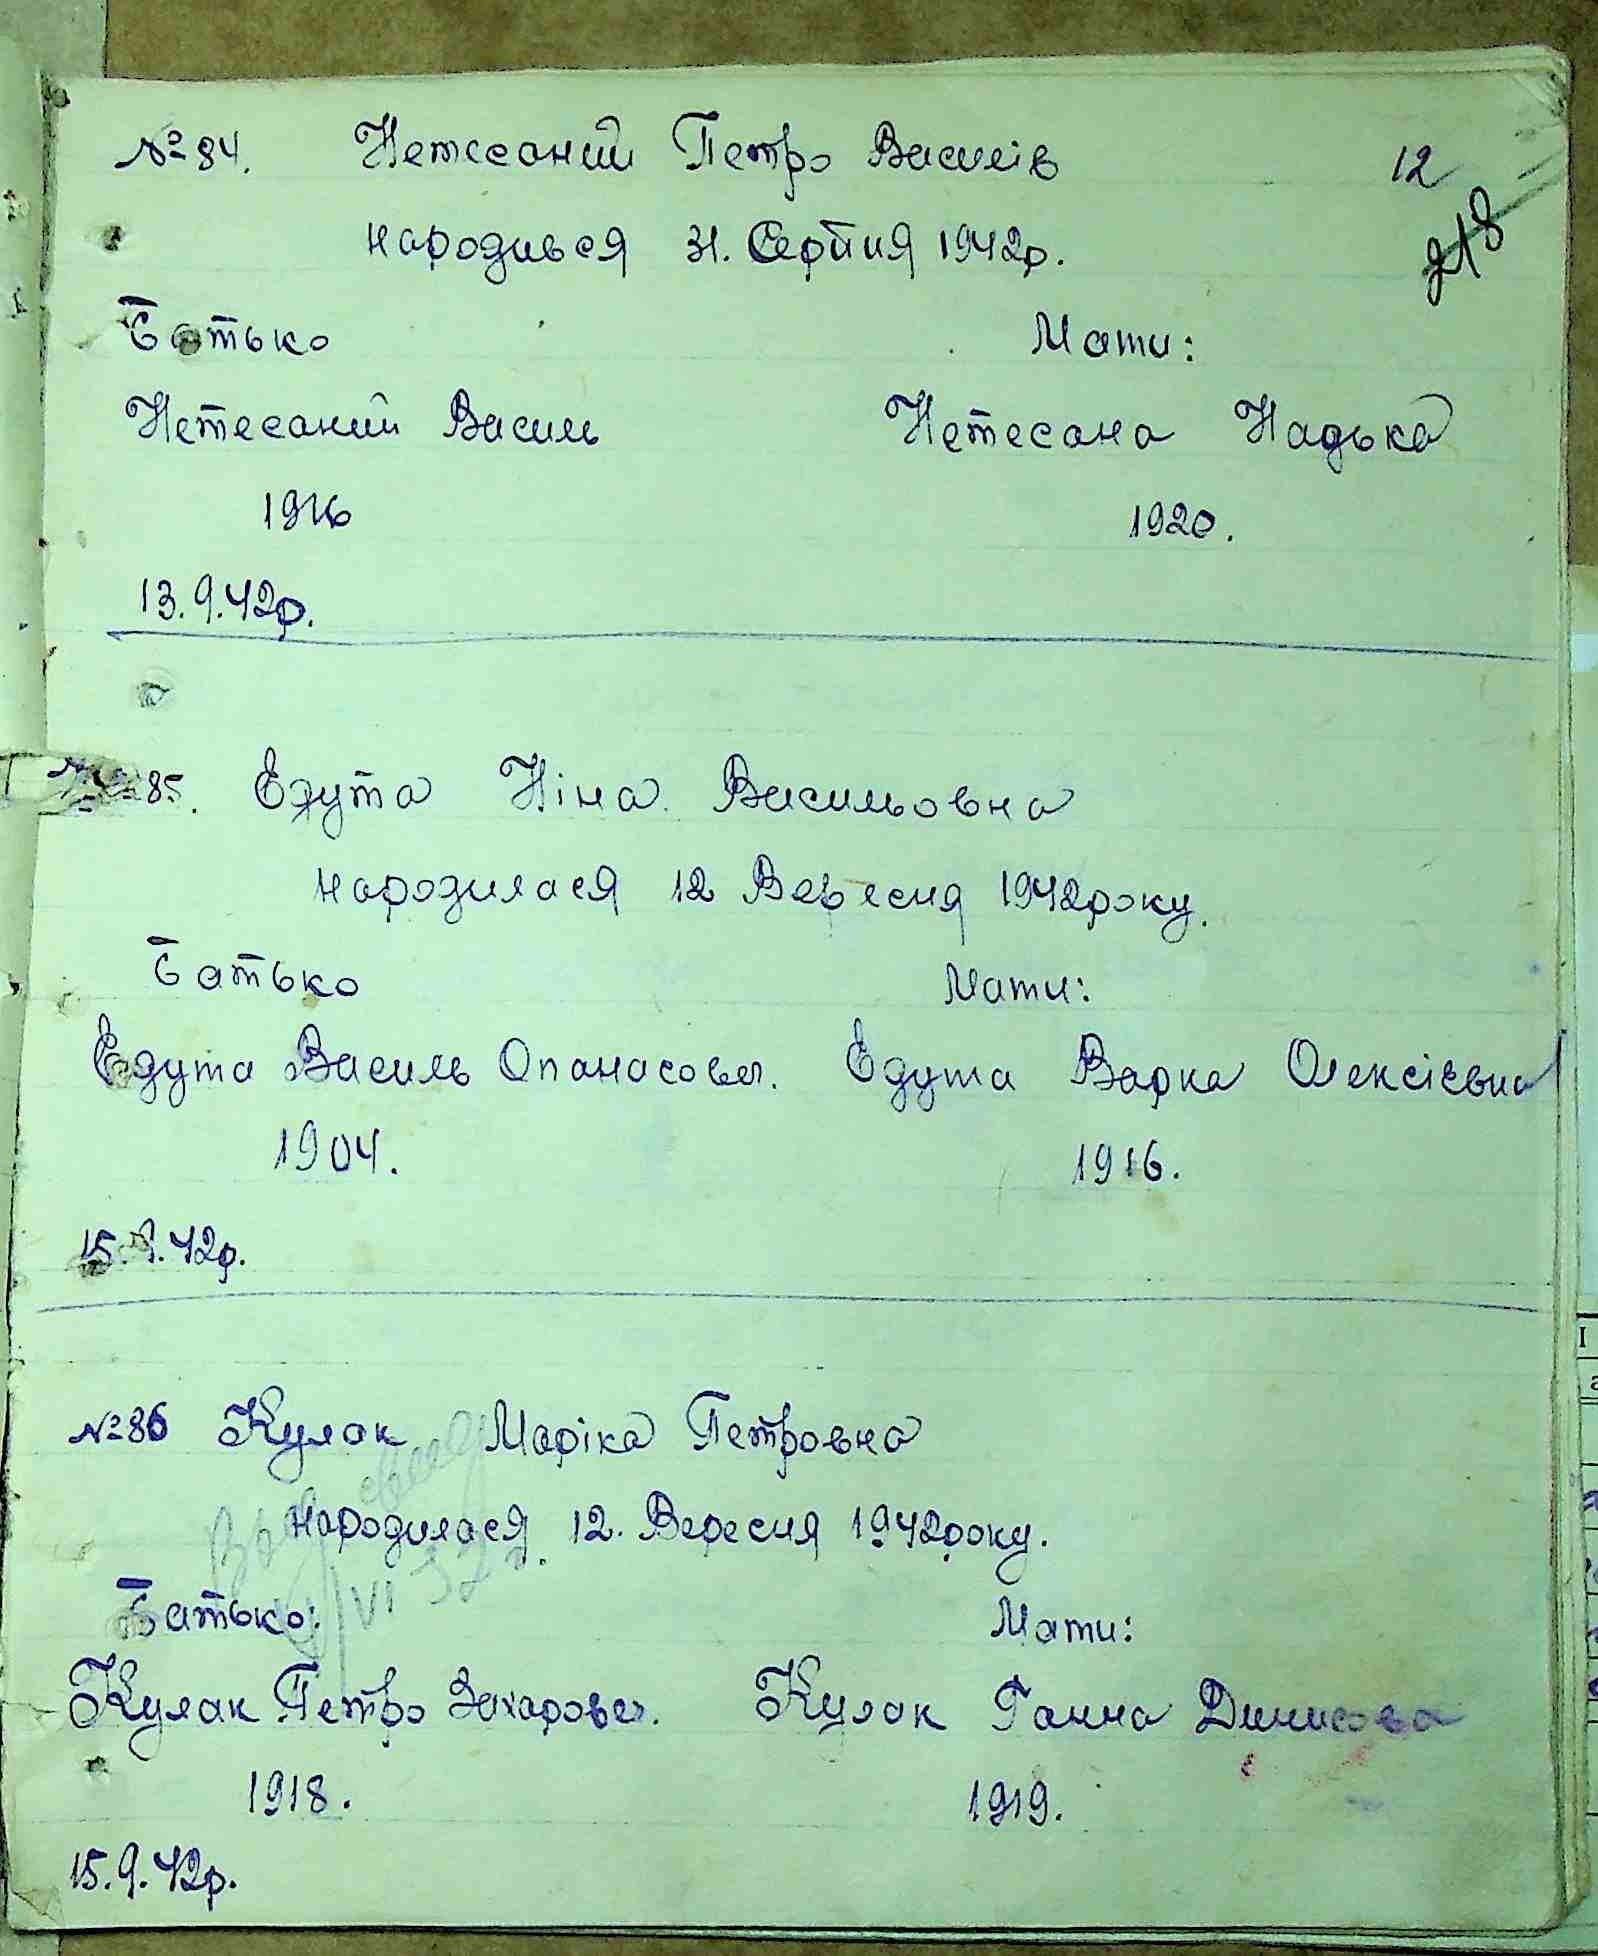 № 84. Нетесаний Петро Василів 12
218
народився 31. Серпня 1942р.
Батько Мати:
Нетесаний Василь Нетесана Надька
1916 1920.
13.9.42р.
№ 85. Едута Ніна Васильовна
народилася 12 Вересня 1942року.
Батько Мати:
Едута Василь Опанасовы. Едута Варка Олексієвна
1904. 1916.
15.9.42р.
№ 86 Кулак Маріка Петровна
народилася 12. Вересня 1942року.
VI 52
Батько: Мати:
Кулак Петро Захаровы. Кулак Ганна Динисова
1918. 1919.
15.9.42р.